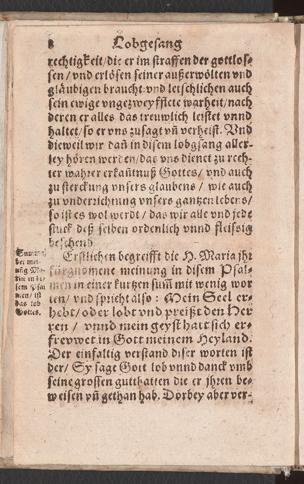 8 Lobgesang
rechtigkeit/die er im straffen der gottlo-
sen/vnd erlösen seiner außerwölten vnd
gläubigen braucht vnd letschlichen auch
sein ewige vngezweyfflete warheit/nach
deren er alles das treuwlich leistet vnnd
haltet/so er vns zusagt vñ verheist. Vnd
dieweil wir dañ in disem lobgsang aller-
ley hören werden/das vns dienet zu rech-
ter wahrer erkäntnuß Gottes/vnd auch
zu sterckung vnsers glaubens/wie auch
zu vnderrichtung vnsers gantzen lebens/
so ist es wol werdt/das wir alle vnd jede
stuck diß selben ordenlich vnnd fleissig
besehend
Erstlichen begreifft die H. Maria jhr
fürgnomene meinung in disem Psal-
men in einer kurtzen sum̃ mit wenig wor
ten/vnd spricht also: Mein Seel er-
hebt/oder lobt vnd preißt den Her
ren/vnnd mein geyst hatt sich er-
frewet in Gott meinem Heyland.
Der einfaltig verstand diser worten ist
der/Sy sage Gott lob vnnd danck vmb
seine grossen gutthatten die er jhren be-
weisen vñ gethan hab. Dorbey aber ver-
der mei-
nũg Ma-
rie in di-
sem Psal
men/ist
das lob
Gottes.